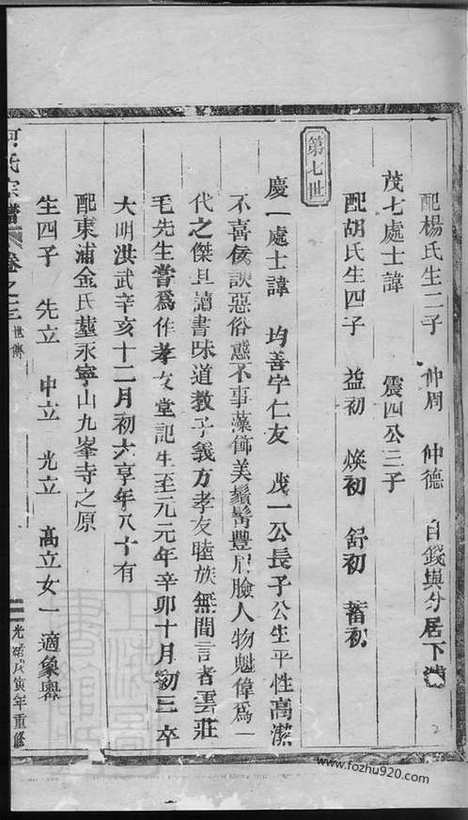 配楊氏生二子　仲周　仲德　自錢與分居下
茂七處士諱　震四公三子
配胡氏生四子　益初　煥初　舒初　蓄初
第七世
慶一處士諱　均善字仁友　茂一公長子公生平性高潔
不喜侫諛惡俗惑不事藻飾美鬚髯豐頤臉人物魁偉爲一
代之傑且讀書味道教子義方孝友睦族無間言者雲莊
毛先生嘗爲作孝友堂記生至元元年辛卯十月初三卒
大明洪武辛亥十二月初六享年八十有
配東浦金氏塟永寧山九峯寺之原
生四子　先立　中立　光立　高立女一適象
氏宗譜　卷之三　世傳
光緒戊寅年重修
www.fozhu920.com